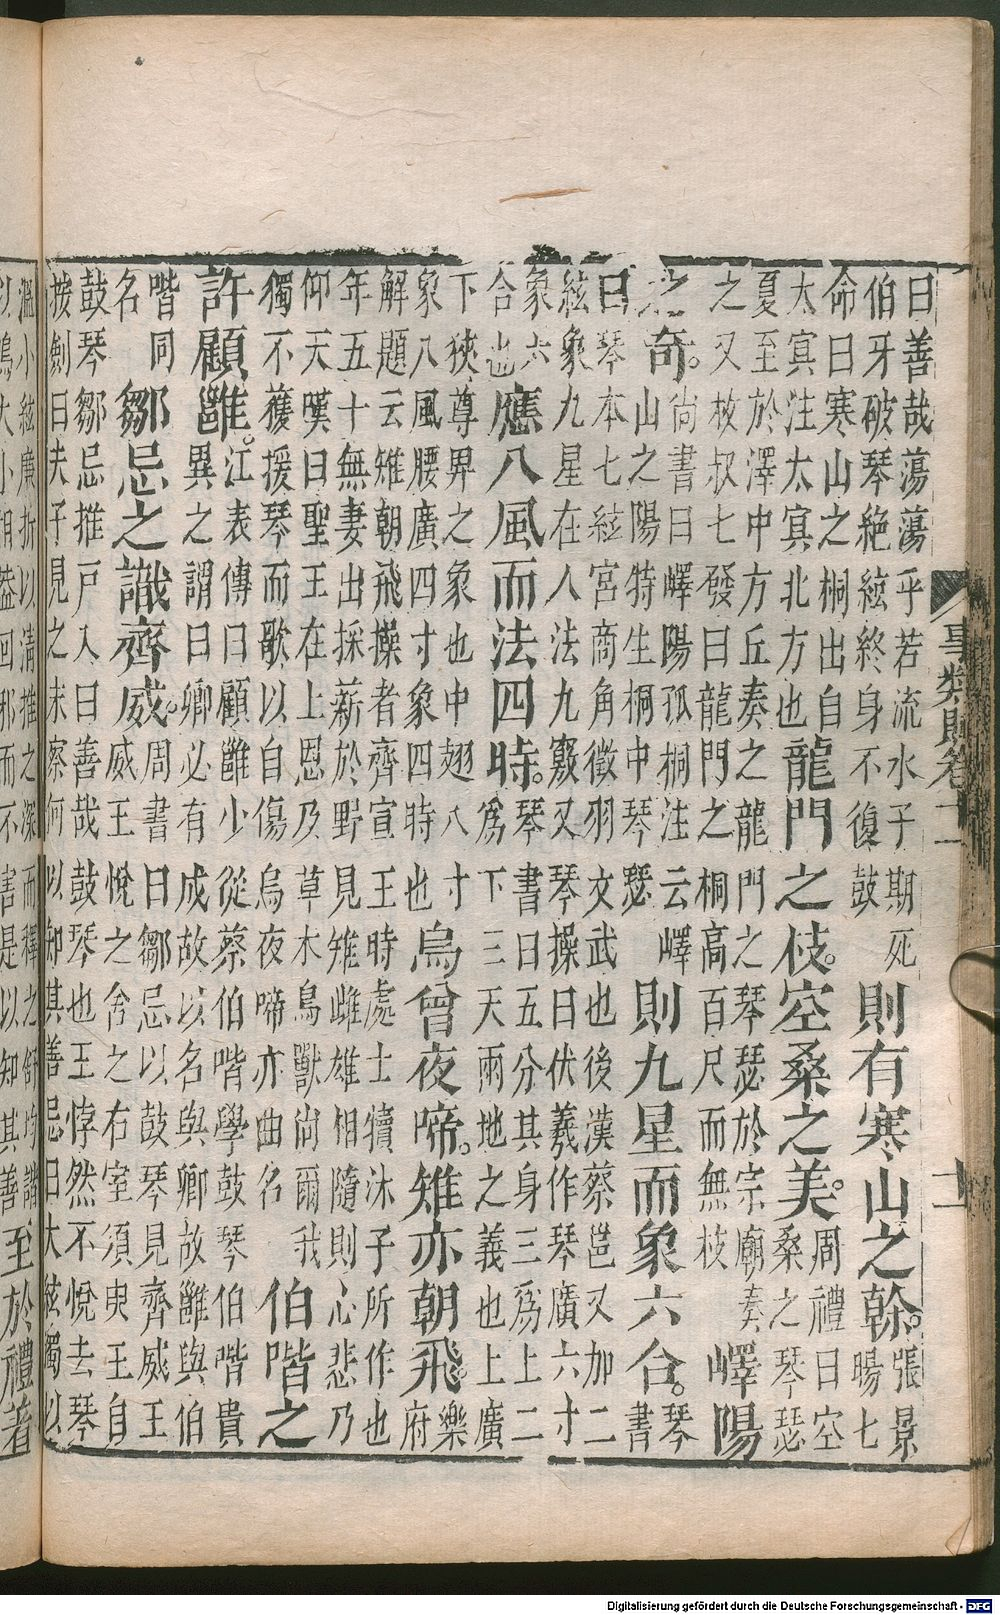 曰善哉蕩蕩乎若流水子期死
伯牙破琴絶絃終身不復鼓
則有寒山之榦。
張景
暘七
命曰寒山之桐出自
太㝠注太㝠北方也
龍門之枝。空桑之美。
周禮曰空
桑之琴瑟
夏至於澤中方丘奏之龍門之琴瑟於宗廟奏
之又枚叔七發曰龍門之桐高百尺而無枝
嶧陽
之奇。
尚書曰嶧陽孤桐注云嶧
山之陽特生桐中琴瑟
則九星而象六合。
琴
書
曰琴本七絃宮商角徵羽文武也後漢蔡邕又加二
絃象九星在人法九竅又琴操曰伏羲作琴廣六寸
象六
合也
應八風而法四時。
琴書曰五分其身三爲上二
爲下三天兩地之義也上廣
下狹尊卑之象也中翅八寸
象八風腰廣四寸象四時也
烏曾夜啼。雉亦朝飛。
樂
府
解題云雉朝飛操者齊宣王時處士犢沐子所作也
年五十無妻出採薪於野見雉雌雄相隨則心悲乃
仰天嘆曰聖王在上恩乃草木鳥獸尚爾我
獨不獲援琴而歌以自傷烏夜啼亦曲名
伯喈之
許顧雝。
江表傳曰顧雝少從蔡伯喈學鼓琴伯喈貴
異之謂曰卿必有成故以名與卿故雝與伯
喈同
名
鄒忌之識齊威。
周書曰鄒忌以鼓琴見齊威王
威王悅之舍之右室須臾王自
鼓琴鄒忌推戸入曰善哉鼓琴也王悖然不悅去琴
按劍曰夫子見之未察何以知其善忌曰大絃獨以
溫小絃廉折以清推之深而釋之舒均諧
以鳴大小相益回邪而不害是以知其善
至於禮著
事類賦卷十一
十一
Digitalisierung gefördert durch die Deutsche Forschungsgemeinschaft - DFG